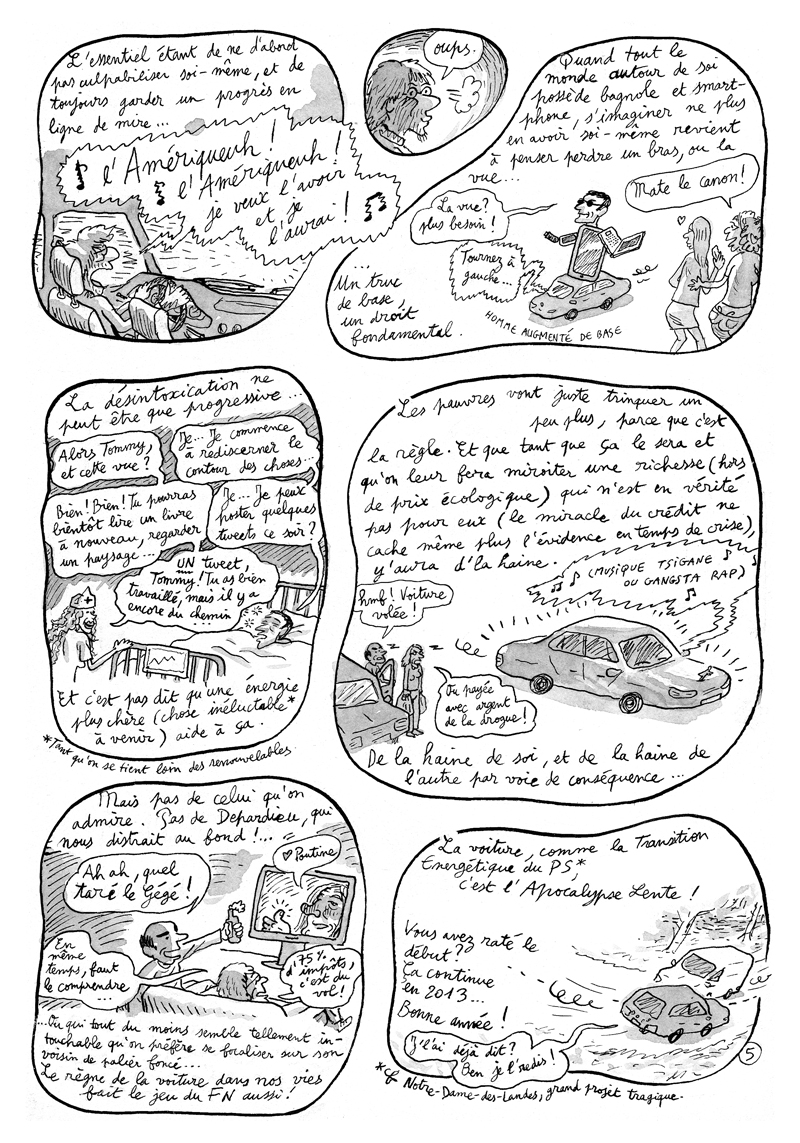 L'essentiel étant de ne d'abord
pas culpabiliser soi-même, et de
toujours garder un progrès en
ligne de mire...
l'Amériqueuh !
l'Amériqueuh !
je veux l'avoir
et je
l'aurai !
oups.
Quand tout le
monde autour de soi
possède bagnole et smart-
phone, s'imaginer ne plus
en avoir soi-même revient
à penser perdre un bras, ou la
vue...
La vue ?
plus besoin !
Mate le canon !
Tournez à
gauche...
HOMME AUGMENTÉ DE BASE
...
Un truc
de base,
un droit
fondamental.
La désintoxication ne
peut être que progressive...
Alors Tommy,
et cette vue ?
Je... Je commence
à rediscerner le
contour des choses...
Bien ! Bien ! Tu pourras
bientôt lire un livre
à nouveau, regarder
un paysage...
Je... Je peux
poster quelques
tweets ce soir ?
UN tweet,
Tommy ! Tu as bien
travaillé, mais il y a
encore du chemin
...
Et c'est pas dit qu'une énergie
plus chère (chose inéluctable*
à venir) aide à ça.
*Tant qu'on se tient loin des renouvelables.
Les pauvres vont juste trinquer un
peu plus, parce que c'est
la règle. Et que tant que ça le sera et
qu'on leur fera miroiter une richesse (hors
de prix écologique) qui n'est en vérité
pas pour eux (le miracle du crédit ne
cache même plus l'évidence en temps de crise),
y'aura d'la haine.
(MUSIQUE TSIGANE
OU GANGSTA RAP)
hmf ! Voiture
volée !
Ou payée
avec argent
de la drogue !
De la haine de soi, et de la haine de
l'autre par voie de conséquence...
Mais pas de celui qu'on
admire. Pas de Depardieu, qui
nous distrait au fond !...
Poutine
Ah ah, quel
taré le Gégé !
En
même
temps, faut
le comprendre
...
75%
d'impôts,
c'est du
vol !
...Ou qui tout du moins semble tellement in-
touchable qu'on préfère se focaliser sur son
voisin de palier foncé...
Le règne de la voiture dans nos vies
fait le jeu du FN aussi !
La voiture, comme la Transition
Energétique du PS*,
c'est l'Apocalypse Lente !
Vous avez raté le
début ?
Ça continue
en 2013...
Bonne année !
J'l'ai déjà dit ?
Ben je l'redis !
5
*cf Notre-Dame-des-Landes, grand projet tragique.